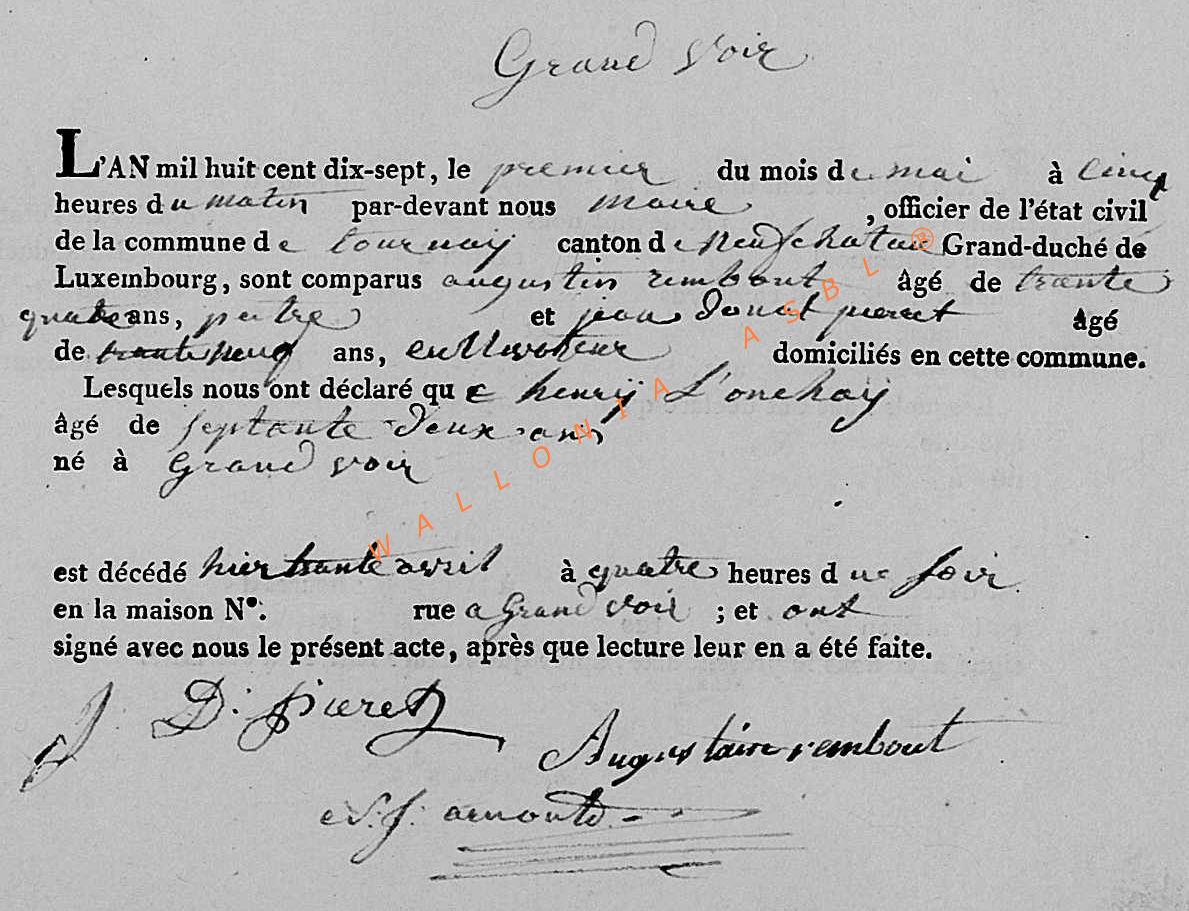 Grand Voir
L'AN mil huit cent dix-sept, le premier du mois de mai à cinq
heures du matin par-devant nous maire, officier de l'état civil
de la commune de tournay canton de Neufchateau Grand-duché de
Luxembourg, sont comparus augustin rembout âgé de trante
quatre ans, patre et jean Donat pierret âgé
de trante neuf ans, cultivateur domiciliés en cette commune.
Lesquels nous ont déclaré que henry L'onchay
âgé de septante deux ans
né à Grand voir
est décédé hier trante avril à quatre heures du soir
en la maison N°: rue a Grand Voir ; et ont
signé avec nous le présent acte, après que lecture leur en a été faite.
J D. pieret
Augustain rembout
arnould
WALLONIA ASBL ®